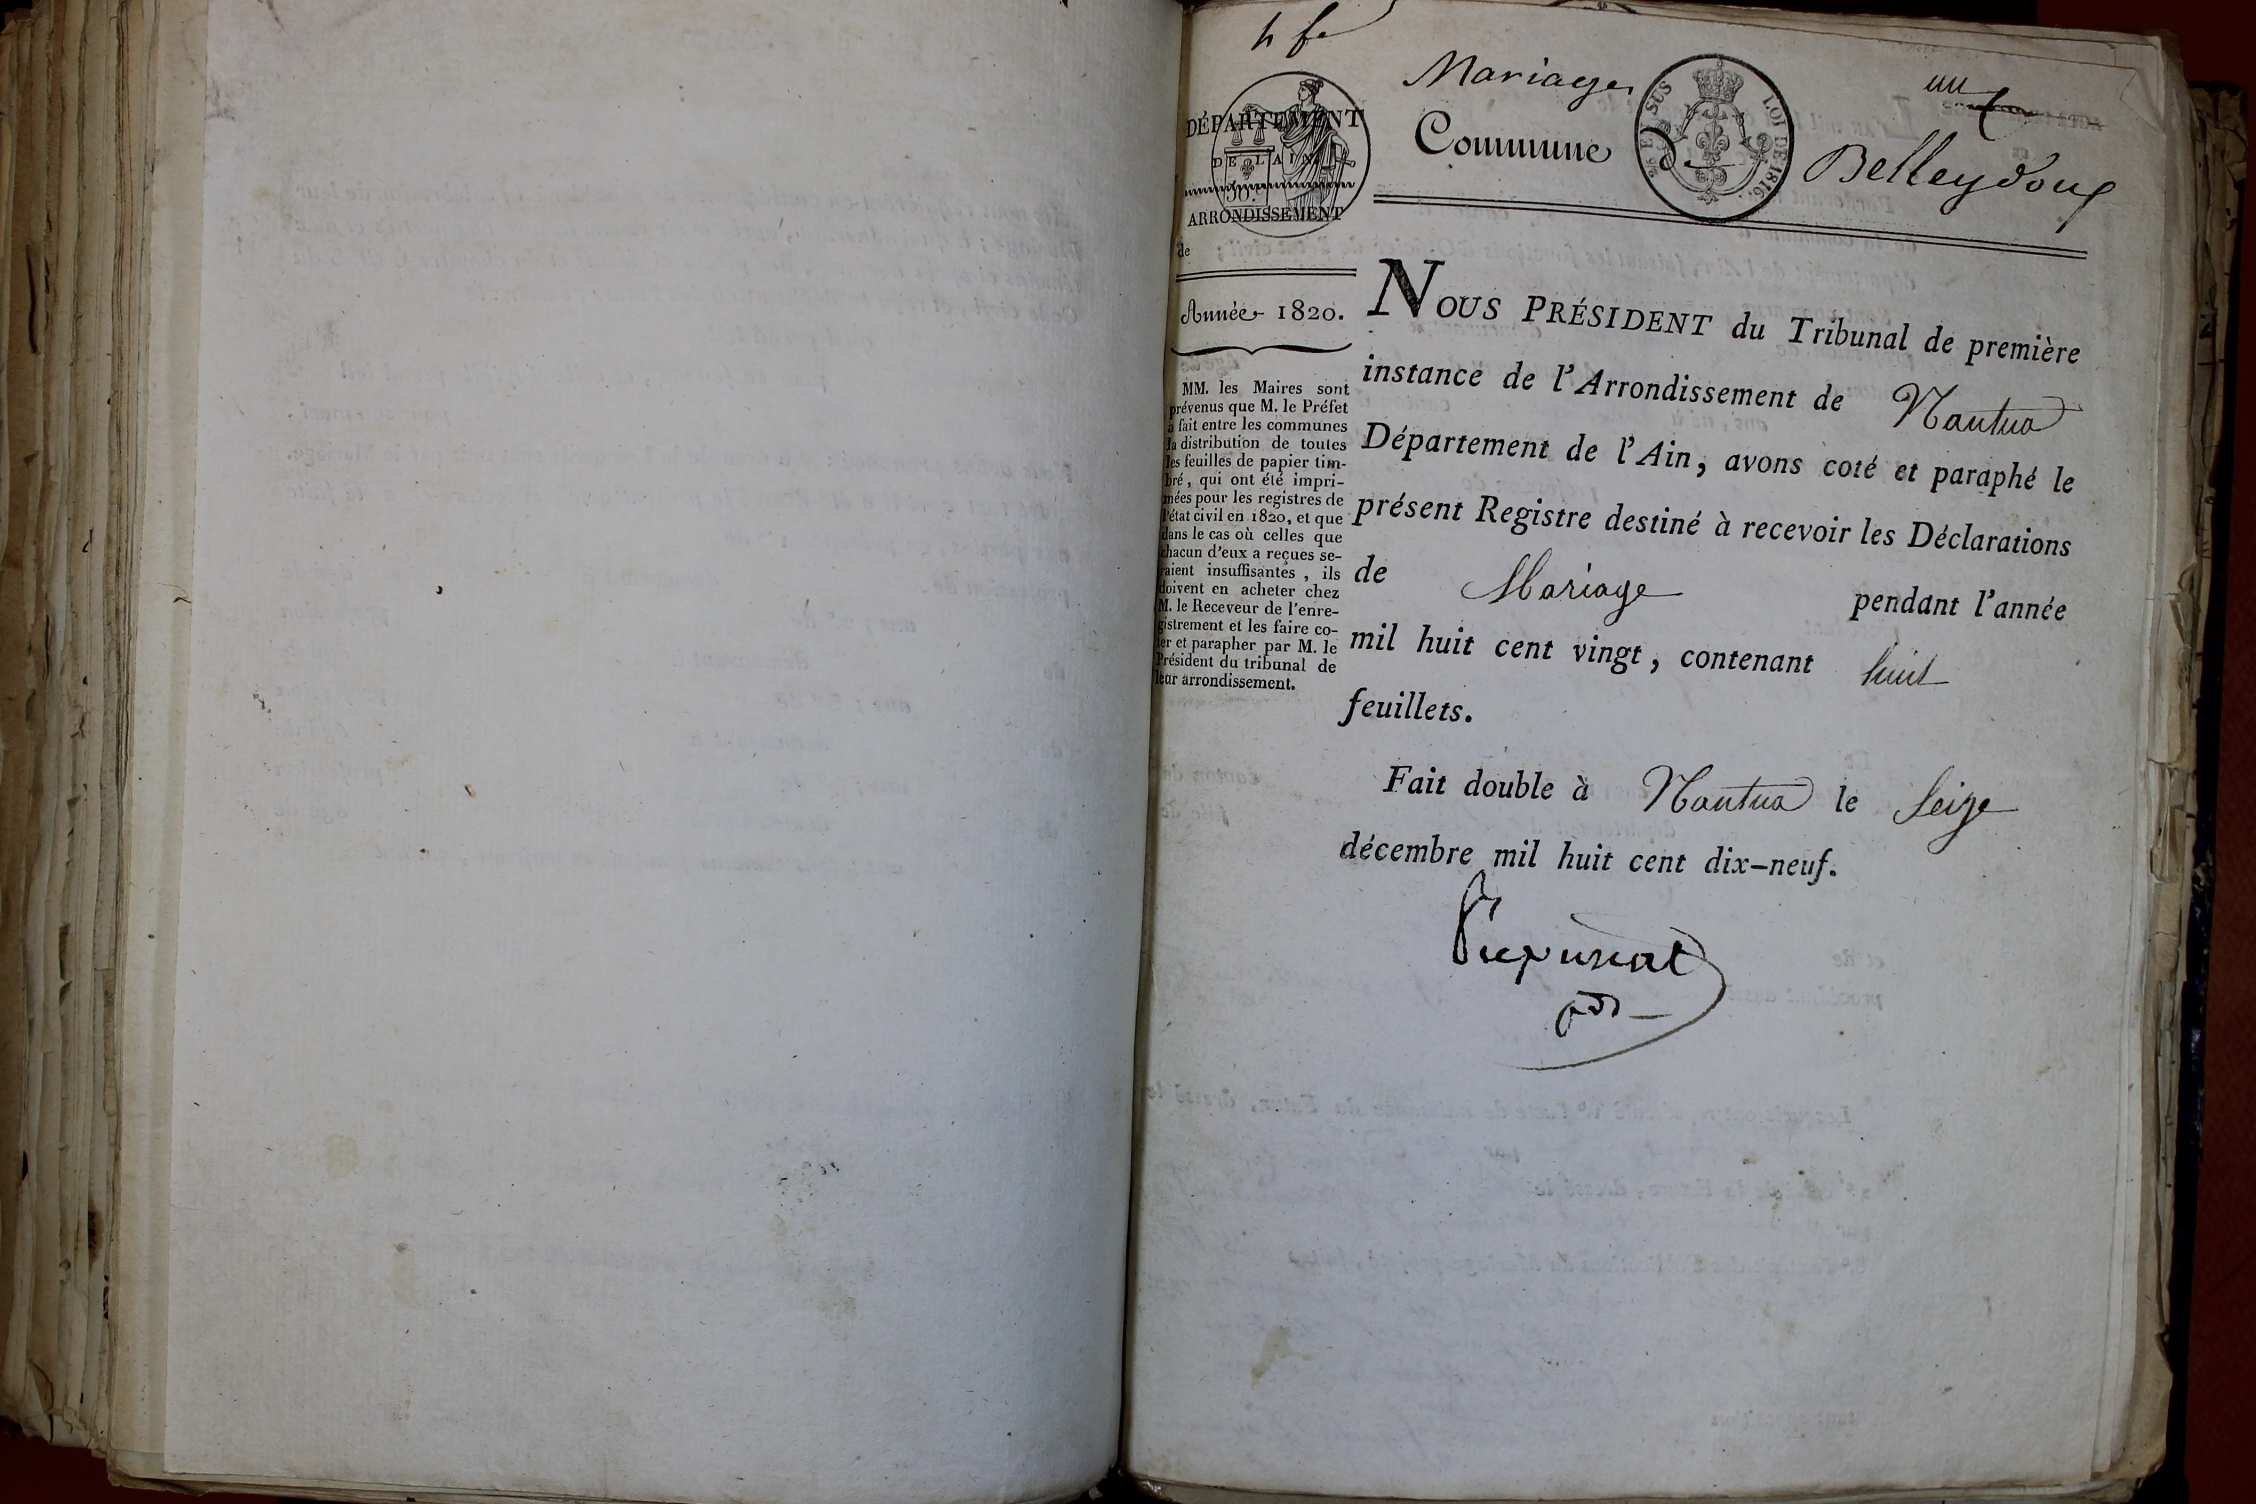 Mariages
un
DÉPARTEMENT
DE L'AIN
50.c
ARRONDISSEMENT
de
Commune de Belleydoux
25 EN SUS LOI DE 1816.
Année 1820.
MM. les Maires sont
prévenus que M. le Préfet
a fait entre les communes
la distribution de toutes
les feuilles de papier tim-
bré, qui ont été impri-
mées pour les registres de
l'état civil en 1820, et que
dans le cas où celles que
chacun d'eux a reçues se-
raient insuffisantes, ils
doivent en acheter chez
M. le Receveur de l'enre-
gistrement et les faire co-
ter et parapher par M. le
Président du tribunal de
leur arrondissement.
NOUS PRÉSIDENT du Tribunal de première
instance de l'Arrondissement de Nantua
Département de l'Ain, avons coté et paraphé le
présent Registre destiné à recevoir les Déclarations
de Mariage pendant l'année
mil huit cent vingt, contenant huit
feuillets.
Fait double à Nantua le seize
décembre mil huit cent dix-neuf.